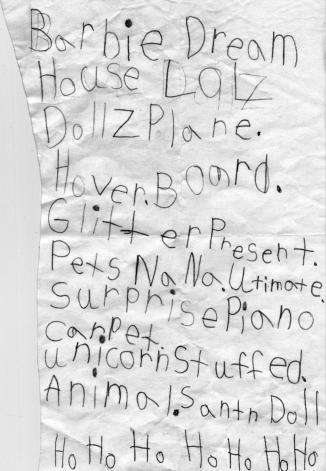 Barbie Dream
House Dolz
DollZ Plane.
Hover.Board.
Glitter Present.
Pets Na Na. Utimate.
SurprisePiano
carpet.
unicornStuffed.
Animal.Santn Doll
Ho Ho Ho Ho Ho Ho Ho